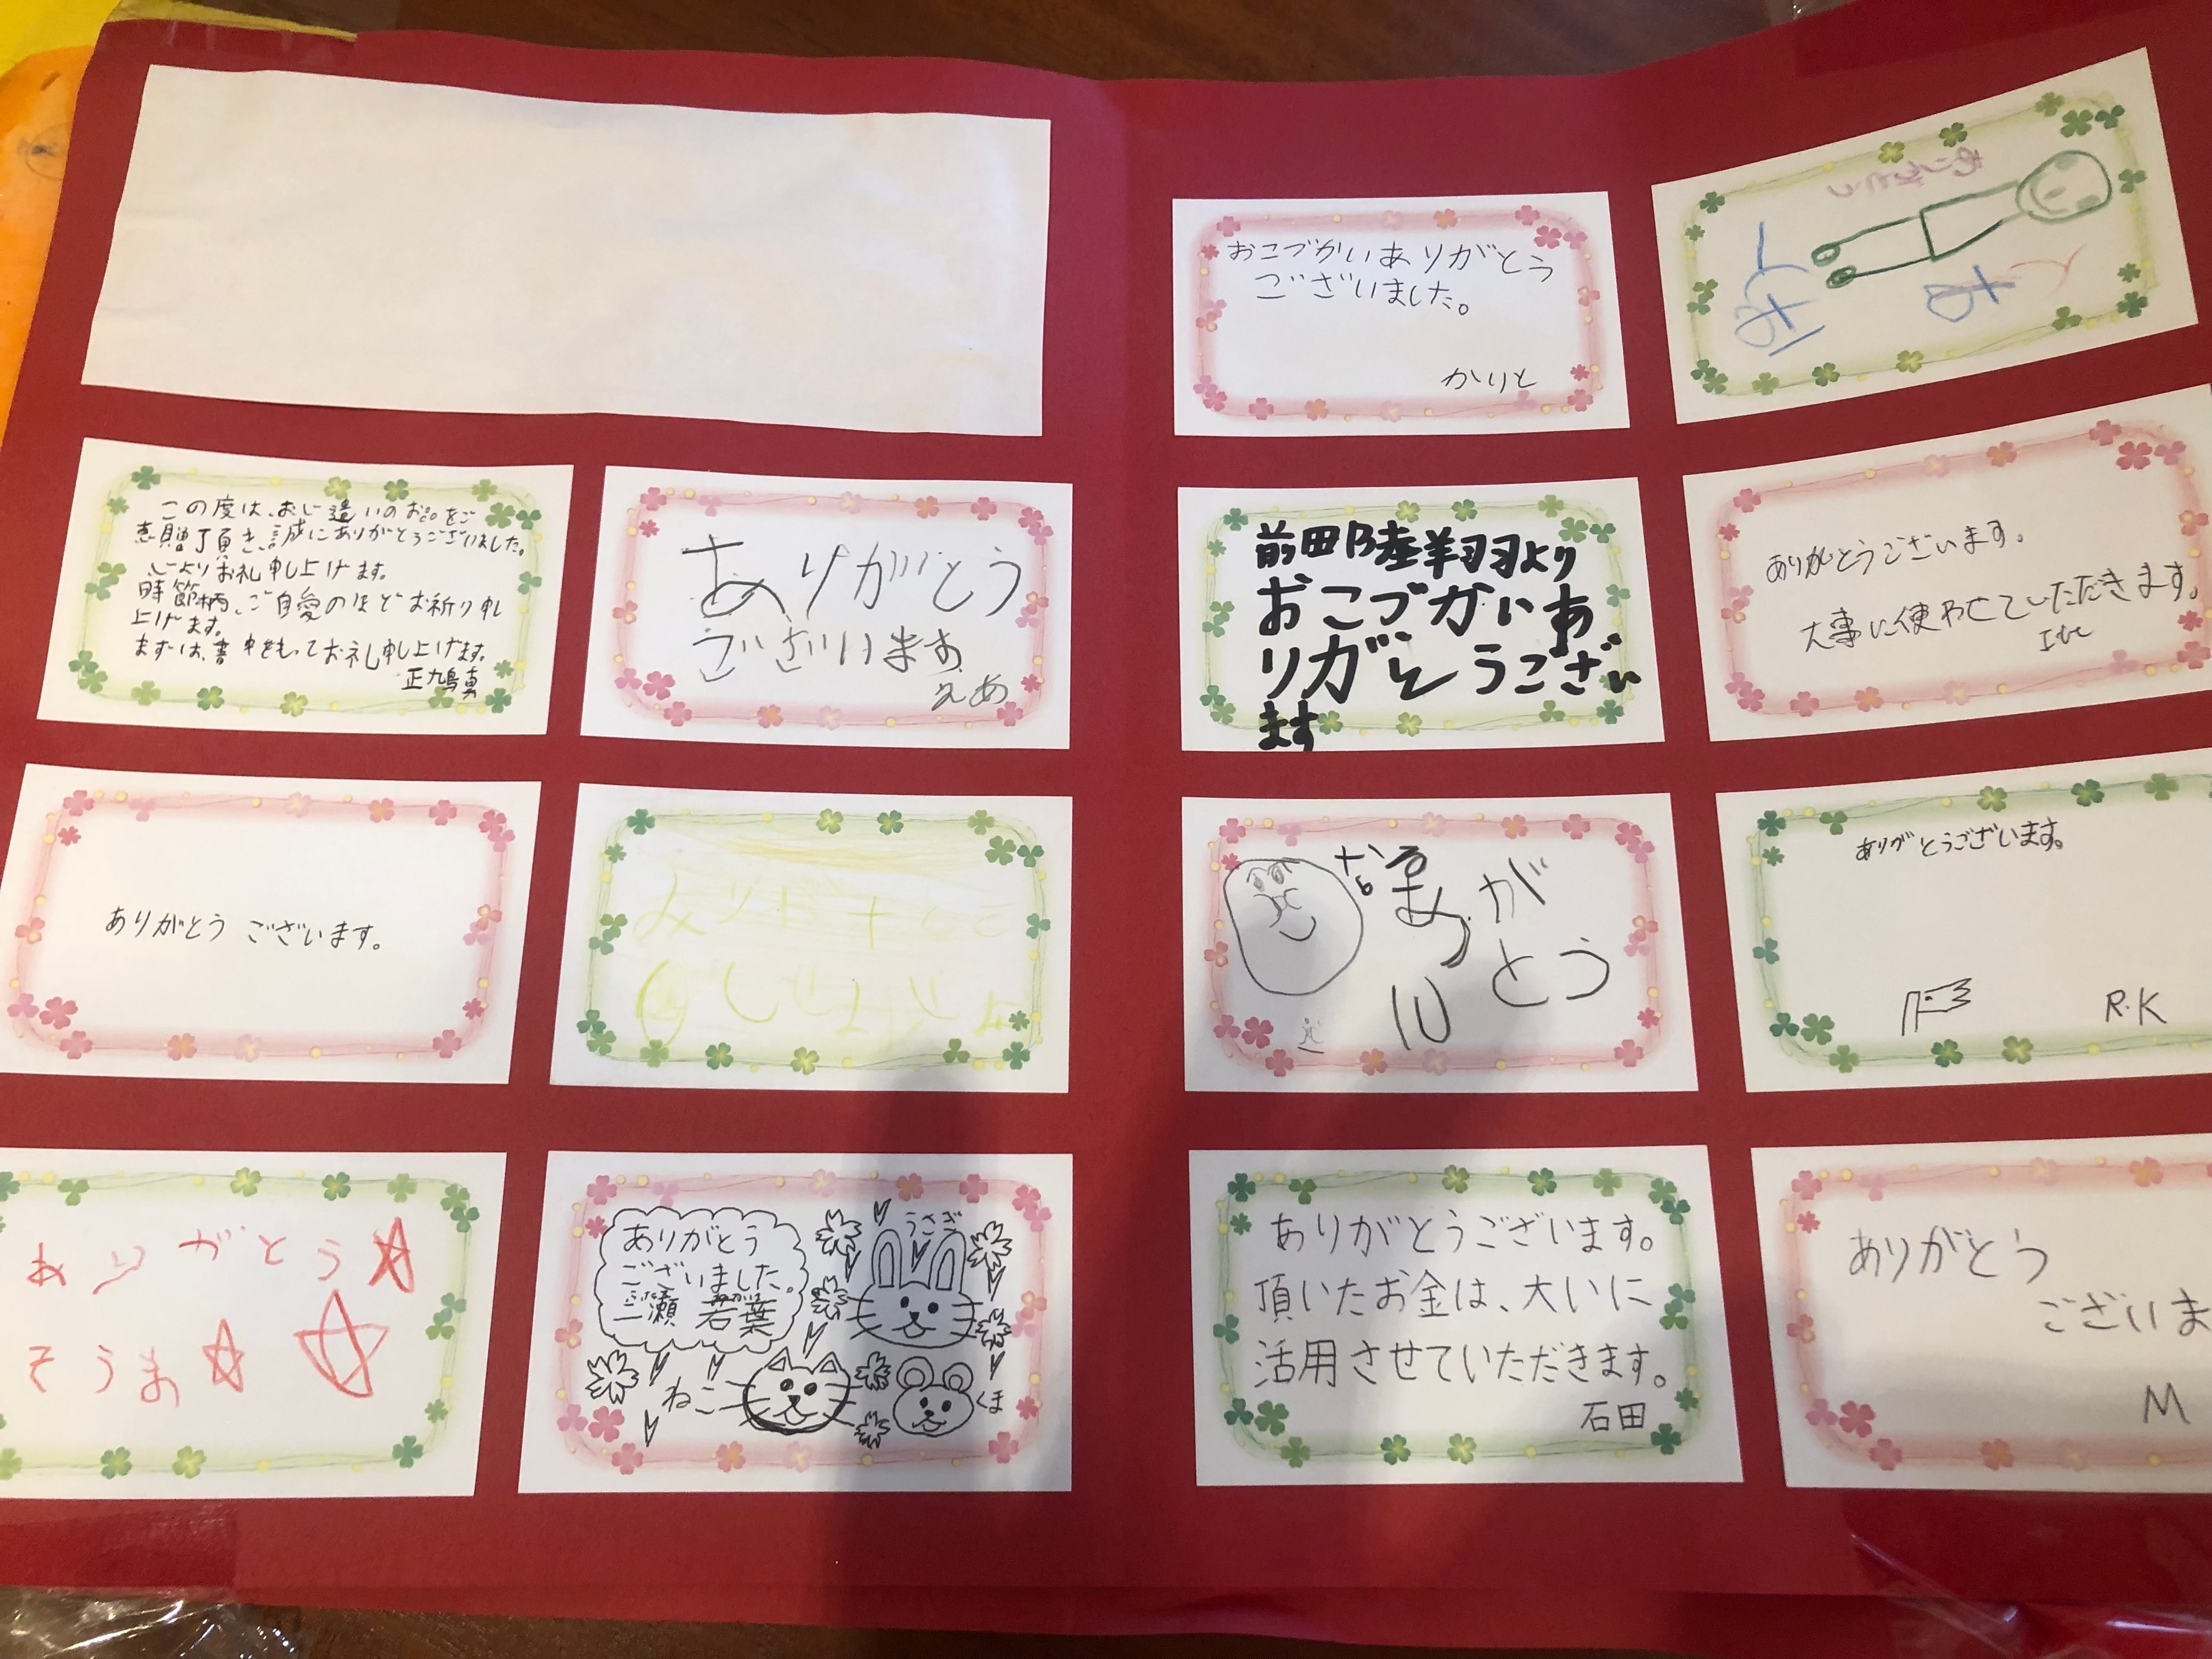 おこづかいありがとう
ございました。
かりと
ありがとう
この度は、おこ遣いのお心をご
恵贈了頂き、誠にありがとうございました。
心よりお礼申し上げます。
時節柄、ご自愛のほどお祈り申し
上げます。
まずは、書中をもってお礼申し上げます。
ありがとう
ございます
えあ
前田陸翔より
おこづかいあ
りがとうござい
ます
ありがとうございます。
大事に使わせていただきます。
ありがとう ございます。
がとう
ありがとうございます。
R.K
ありがとう
そうま
ありがとう
ございました。
二瀬 若葉
うさぎ
ねこ
くま
ありがとうございます。
頂いたお金は、大いに
活用させていただきます。
石田
ありがとう
ございま
M